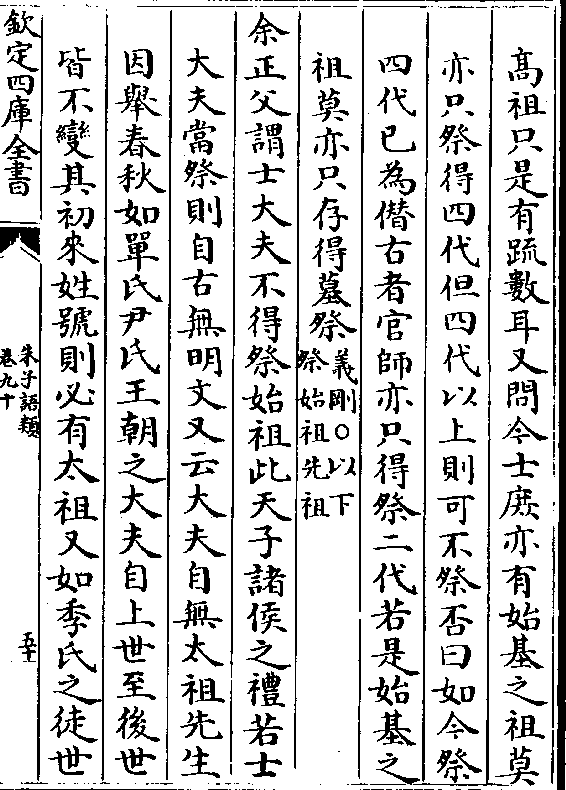 高祖只是有疏數耳又問今士庶亦有始基之祖莫
亦只祭得四代但四代以上則可不祭否曰如今祭
四代已為僭古者官師亦只得祭二代若是始基之
祖莫亦只存得墓祭義剛○以下
祭始祖先祖
余正父謂士大夫不得祭始祖此天子諸侯之禮若士
大夫當祭則自古無明文又云大夫自無太祖先生
因舉春秋如單氏尹氏王朝之大夫自上世至後世
皆不變其初來姓號則必有太祖又如季氏之徒世
欽定四庫全書
朱子語類
卷九十
五十